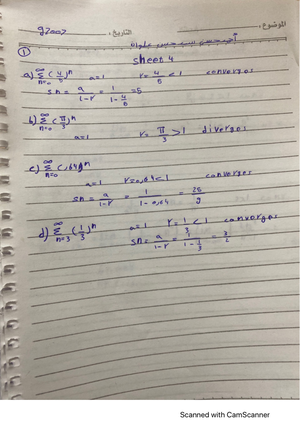 الموضوع:
التاريخ:
92007
1
sheet 4
a) ∞Σn=0 (4/5)^n a=1 r=4/5 <1 converges
sn = a/1-r = 1/1-4/5 =5
b) ∞Σn=0 (π/3)^n
a=1 r=π/3 >1 diverges
c) ∞Σn=0 (,64)^n
a=1 r=0,64<1 converges
sn = a/1-r = 1/1-0,64 = 25/9
d) ∞Σn=3 (1/3)^n a=1 r=1/3 <1 converges
sn= a/1-r = 1/1-1/3 = 3/2
Scanned with CamScanner